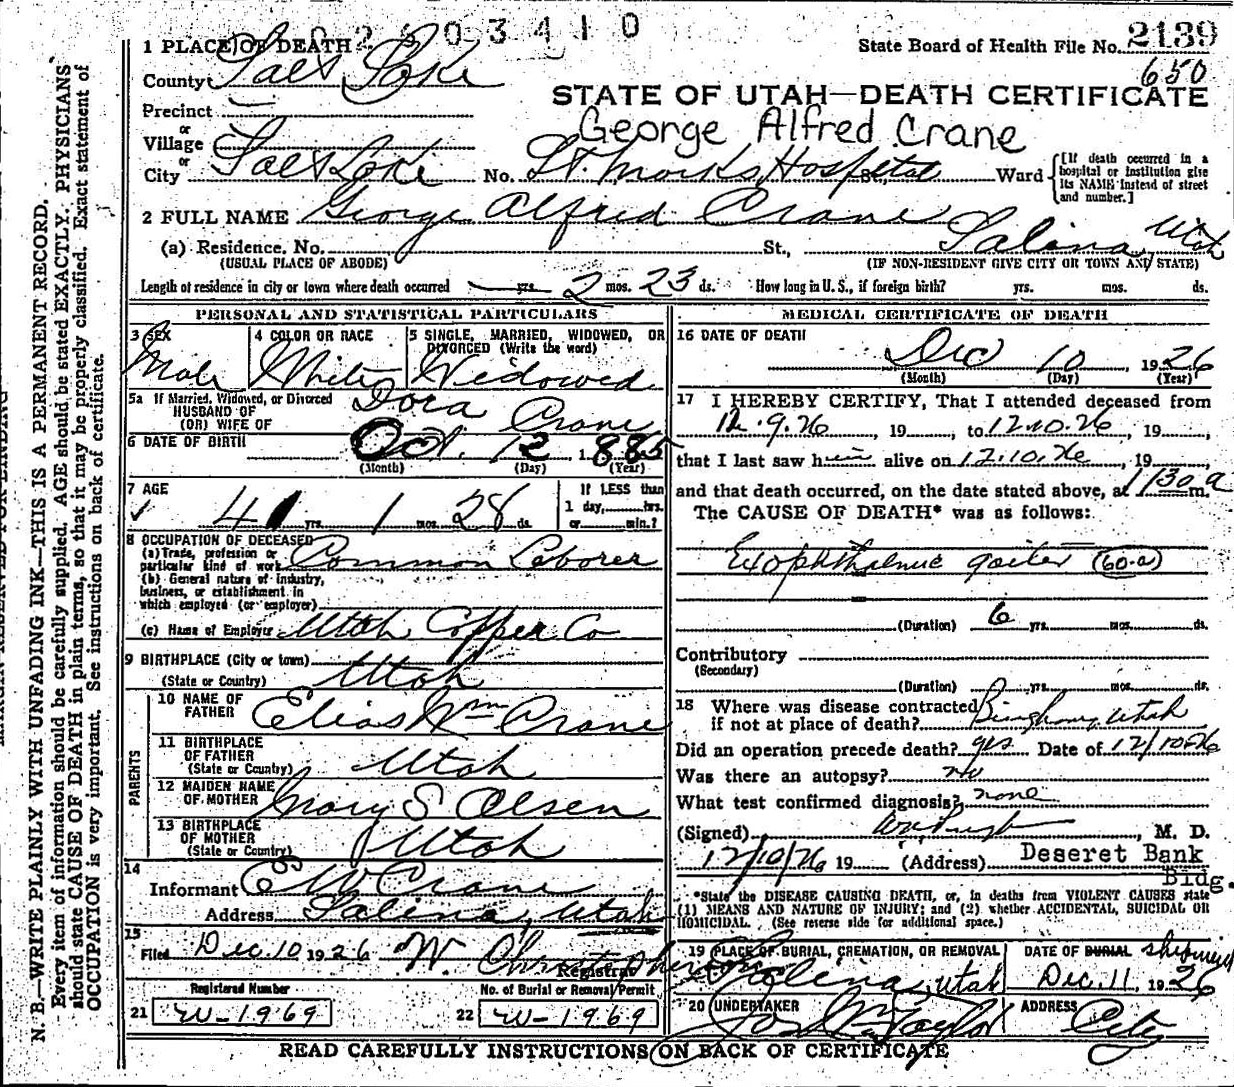 02603410
1 PLACE OF DEATH
State Board of Health File No. 2139
650
County Salt Lake
STATE OF UTAH—DEATH CERTIFICATE
Precinct
George Alfred Crane
or
Village
or
City Salt Lake No. St. Marks Hospital St., Ward
[If death occurred in a hospital or institution give its NAME instead of street and number.]
2 FULL NAME George Alfred Crane
(a) Residence. No. St., Salina, Utah
(USUAL PLACE OF ABODE) (IF NON-RESIDENT GIVE CITY OR TOWN AND STATE)
Length of residence in city or town where death occurred — yrs. 2 mos. 23 ds. How long in U. S., if foreign birth? yrs. mos. ds.
PERSONAL AND STATISTICAL PARTICULARS
3 SEX
Male
4 COLOR OR RACE
White
5 SINGLE, MARRIED, WIDOWED, OR
DIVORCED (Write the word)
Widowed
5a If Married, Widowed, or Divorced
HUSBAND OF
(OR) WIFE OF
Dora Crane
6 DATE OF BIRTH Oct. 12 1885
(Month) (Day) (Year)
7 AGE
41 yrs. 1 mos. 28 ds.
If LESS than
1 day, hrs.
or min.?
8 OCCUPATION OF DECEASED
(a) Trade, profession or
particular kind of work Common Laborer
(b) General nature of industry,
business, or establishment in
which employed (or employer)
(c) Name of Employer Utah Copper Co
9 BIRTHPLACE (City or town)
(State or Country) Utah
PARENTS
10 NAME OF
FATHER Elias Wm Crane
11 BIRTHPLACE
OF FATHER
(State or Country) Utah
12 MAIDEN NAME
OF MOTHER Mary S Olsen
13 BIRTHPLACE
OF MOTHER
(State or Country) Utah
14
Informant E W Crane
Address Salina, Utah
15
Filed Dec. 10 1926 W. Christopherson
Registrar
Registered Number
21 W-1969
No. of Burial or Removal Permit
22 W-1969
MEDICAL CERTIFICATE OF DEATH
16 DATE OF DEATH
Dec 10, 1926
(Month) (Day) (Year)
17 I HEREBY CERTIFY, That I attended deceased from
12.9.26, 19 , to 12.10.26, 19 ,
that I last saw him alive on 12.10.26, 19 ,
and that death occurred, on the date stated above, at 1 30 a m.
The CAUSE OF DEATH* was as follows:
Exophthalmic goiter (60-a)
(Duration) 6 yrs. mos. ds.
Contributory
(Secondary)
(Duration) yrs. mos. ds.
18 Where was disease contracted
if not at place of death? Bingham, Utah
Did an operation precede death? yes Date of 12/10-26
Was there an autopsy? no
What test confirmed diagnosis? none
(Signed) , M. D.
12/10/26 19 (Address) Deseret Bank
Bldg.
*State the DISEASE CAUSING DEATH, or, in deaths from VIOLENT CAUSES state
(1) MEANS AND NATURE OF INJURY; and (2) whether ACCIDENTAL, SUICIDAL OR
HOMICIDAL. (See reverse side for additional space.)
19 PLACE OF BURIAL, CREMATION, OR REMOVAL
Salina, Utah
DATE OF BURIAL shipment
Dec. 11, 1926
20 UNDERTAKER
Jos. Wm Taylor
ADDRESS
City
READ CAREFULLY INSTRUCTIONS ON BACK OF CERTIFICATE
N. B.—WRITE PLAINLY WITH UNFADING INK—THIS IS A PERMANENT RECORD.
Every item of information should be carefully supplied. AGE should be stated EXACTLY. PHYSICIANS
should state CAUSE OF DEATH in plain terms, so that it may be properly classified. Exact statement of
OCCUPATION is very important. See instructions on back of certificate.